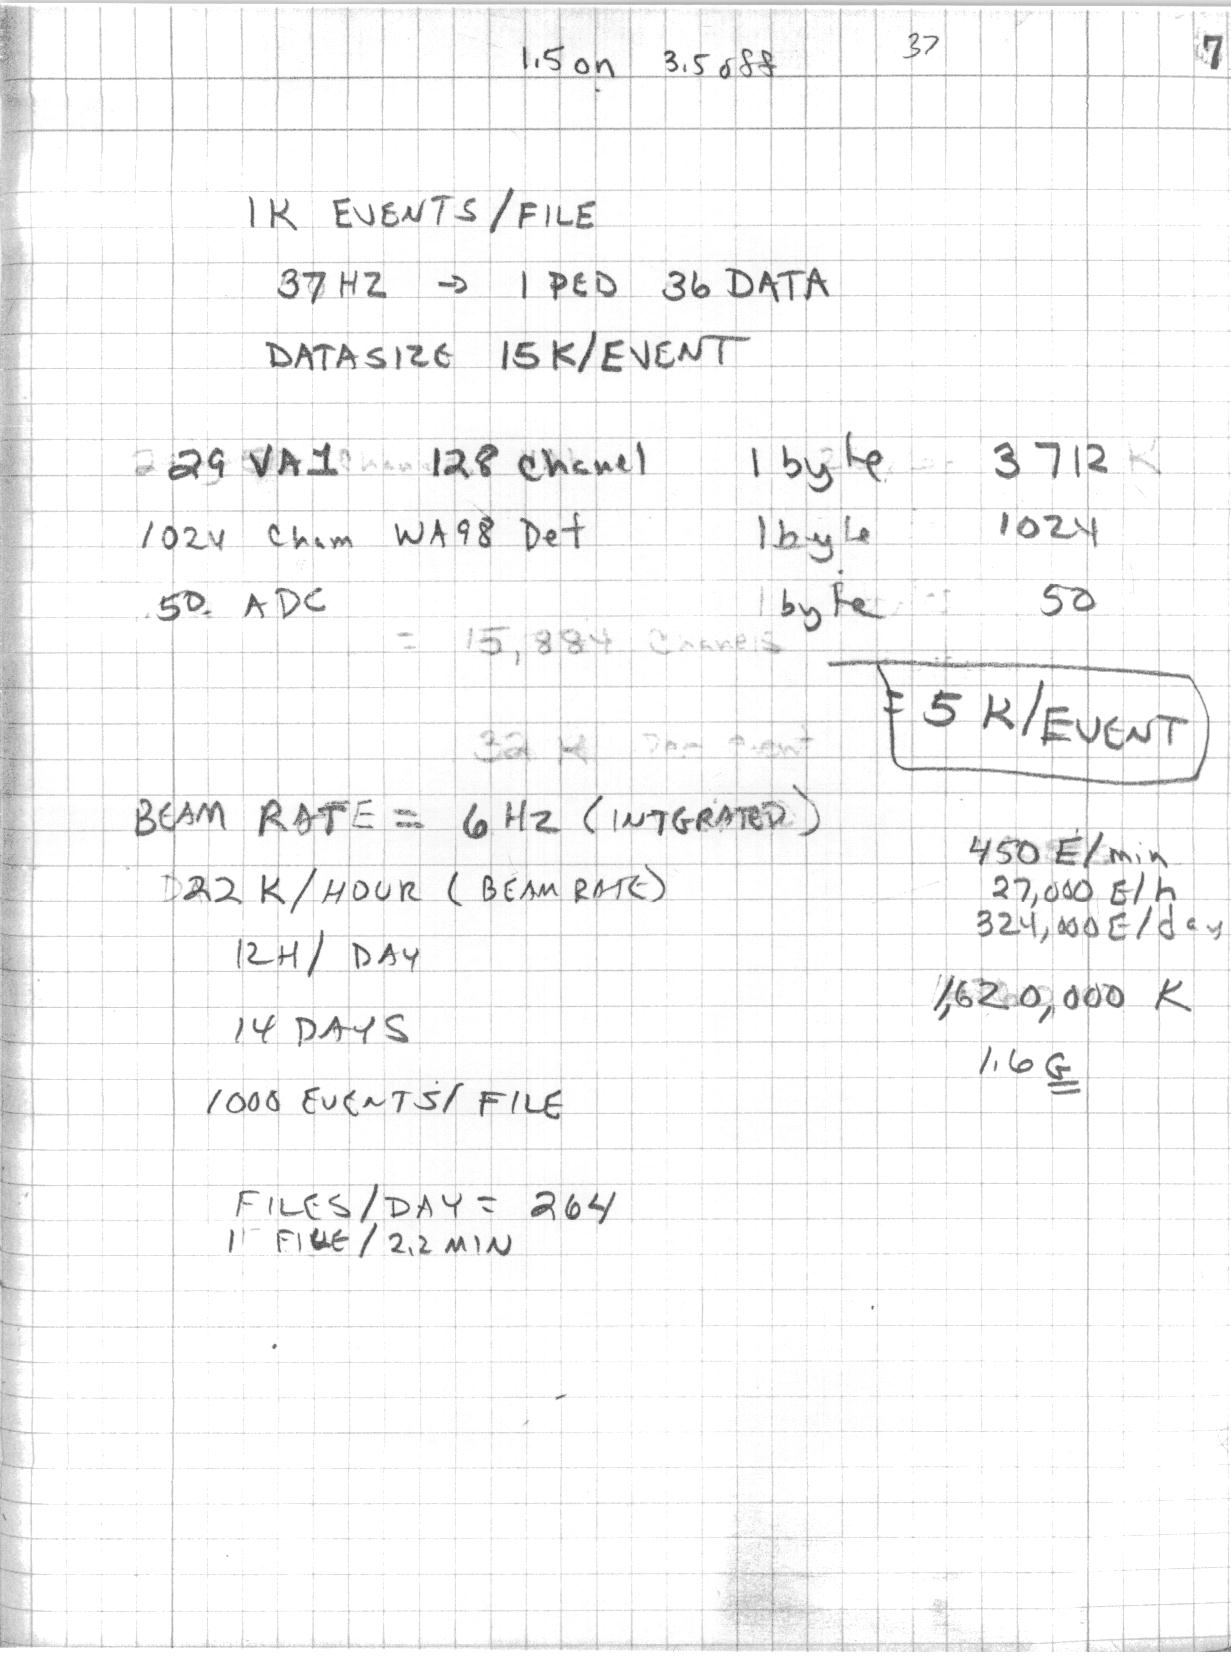 1.5 on 3.5 off 37 7
1K EVENTS/FILE
37 HZ → 1 PED 36 DATA
DATASIZE 15K/EVENT
29 VA1 128 chanel 1 byte 3712 K
1024 Cham WA98 Det 1 byte 1024
50. ADC 1 byte 50
= 15,884 Chanels
= 5 K/EVENT
32 K
BEAM RATE = 6 HZ (INTGRATED)
22 K/HOUR (BEAM RATE)
12H/ DAY
14 DAYS
1000 EVENTS/ FILE
FILES/DAY = 264
1 FILE / 2.2 MIN
450 E/min
27,000 E/h
324,000 E/day
1,620,000 K
1.6 G